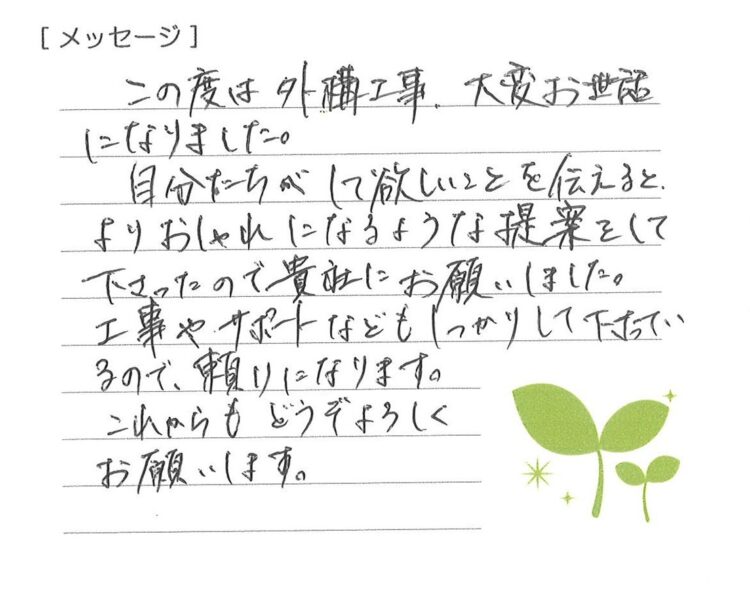 [メッセージ]
この度は外構工事、大変お世話
になりました。
自分たちがして欲しいことを伝えると、
よりおしゃれになるような提案をして
下さったので貴社にお願いしました。
工事やサポートなどもしっかりして下さってい
るので、頼りになります。
これからもどうぞよろしく
お願いします。